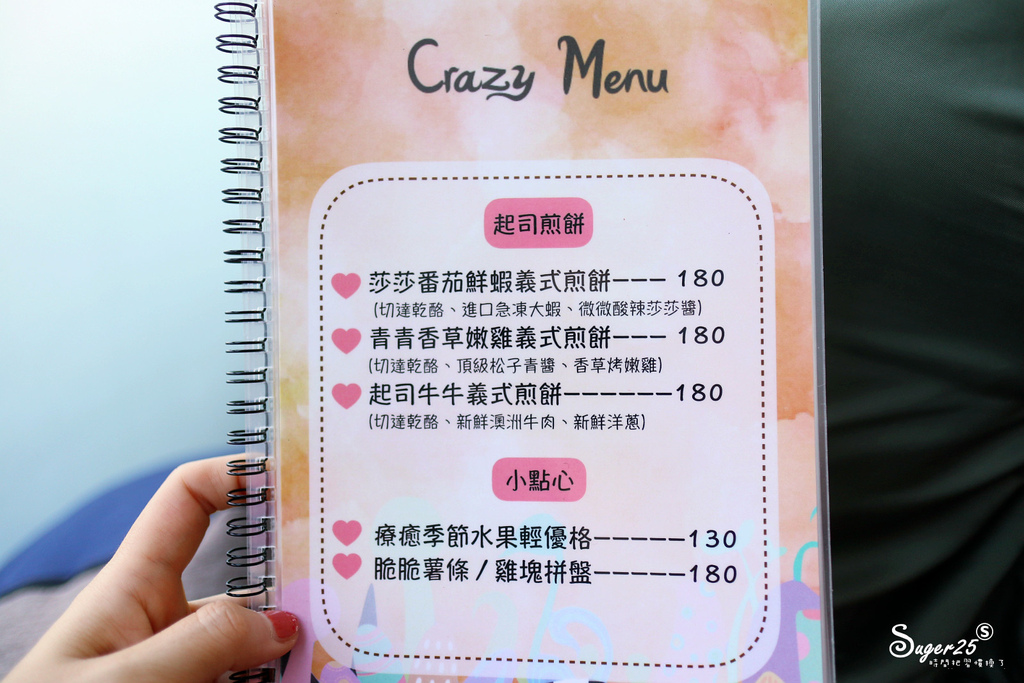 Crazy Menu
起司煎餅
莎莎番茄鮮蝦義式煎餅--- 180
(切達乾酪、進口急凍大蝦、微微酸辣莎莎醬)
青青香草嫩雞義式煎餅--- 180
(切達乾酪、頂級松子青醬、香草烤嫩雞)
起司牛牛義式煎餅------180
(切達乾酪、新鮮澳洲牛肉、新鮮洋蔥)
小點心
療癒季節水果輕優格-----130
脆脆薯條/雞塊拼盤-----180
Suger25 S
時間把習慣換了